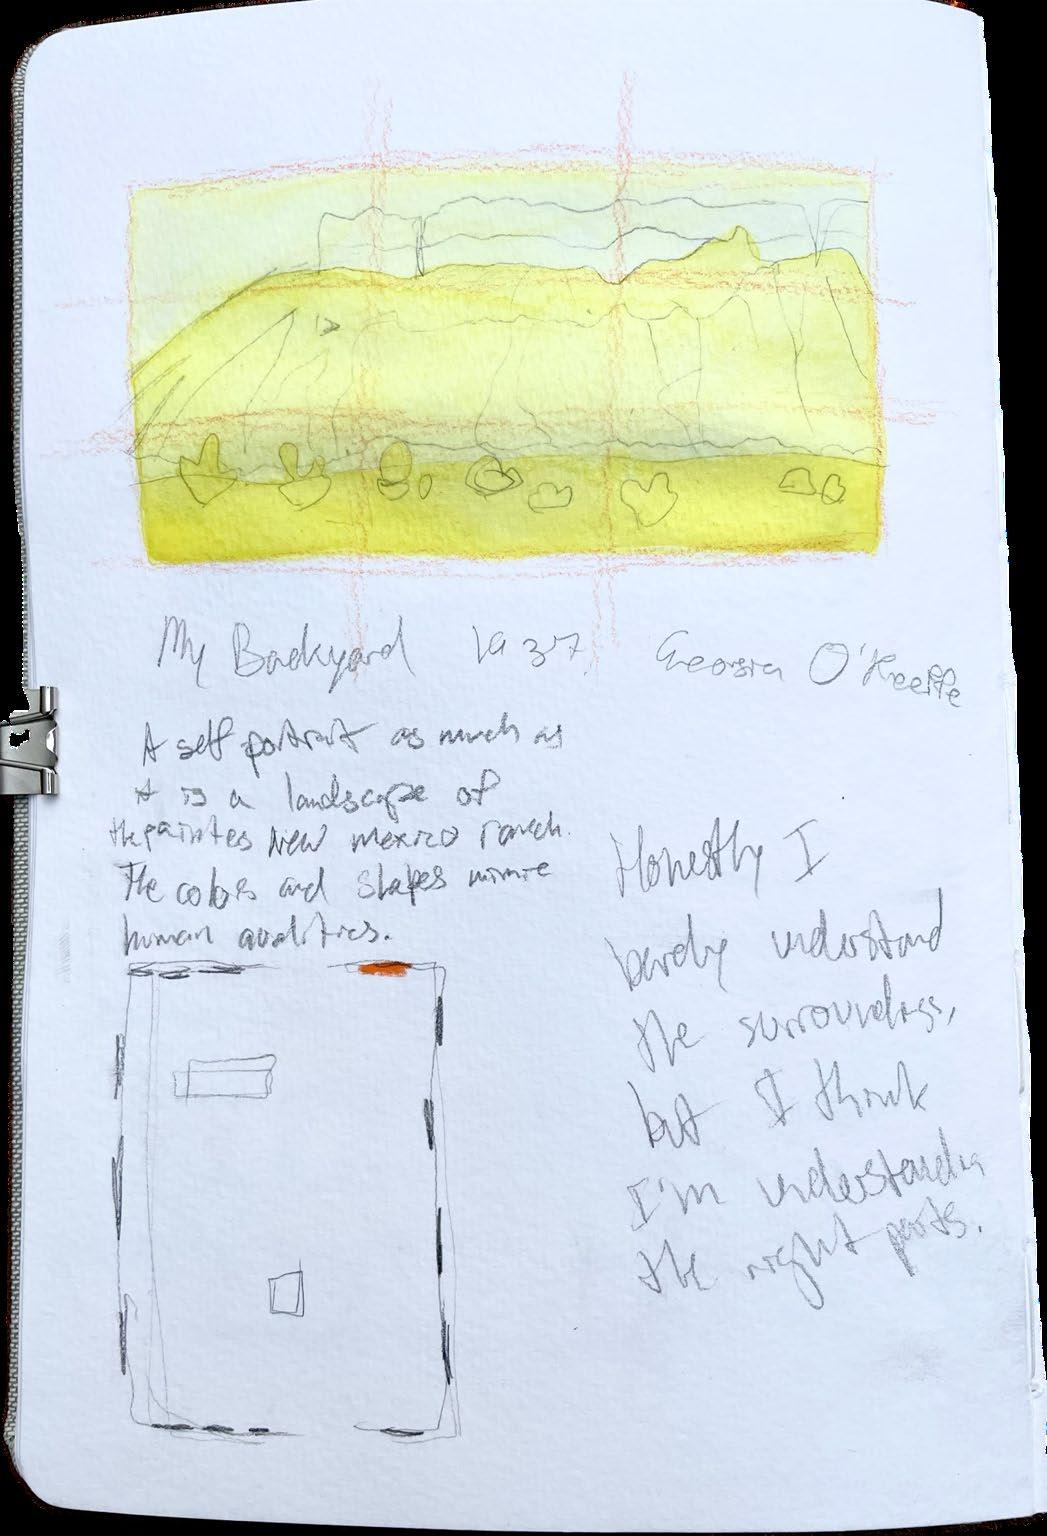 My Backyard 1937. Georgia O'Keeffe
A self portrait as much as
it is a landscape of
the paintes New mexico ranch.
The colors and shapes mimic
human qualities.
Honestly I
barely understand
the surroundings,
but I think
I'm understanding
the right parts.